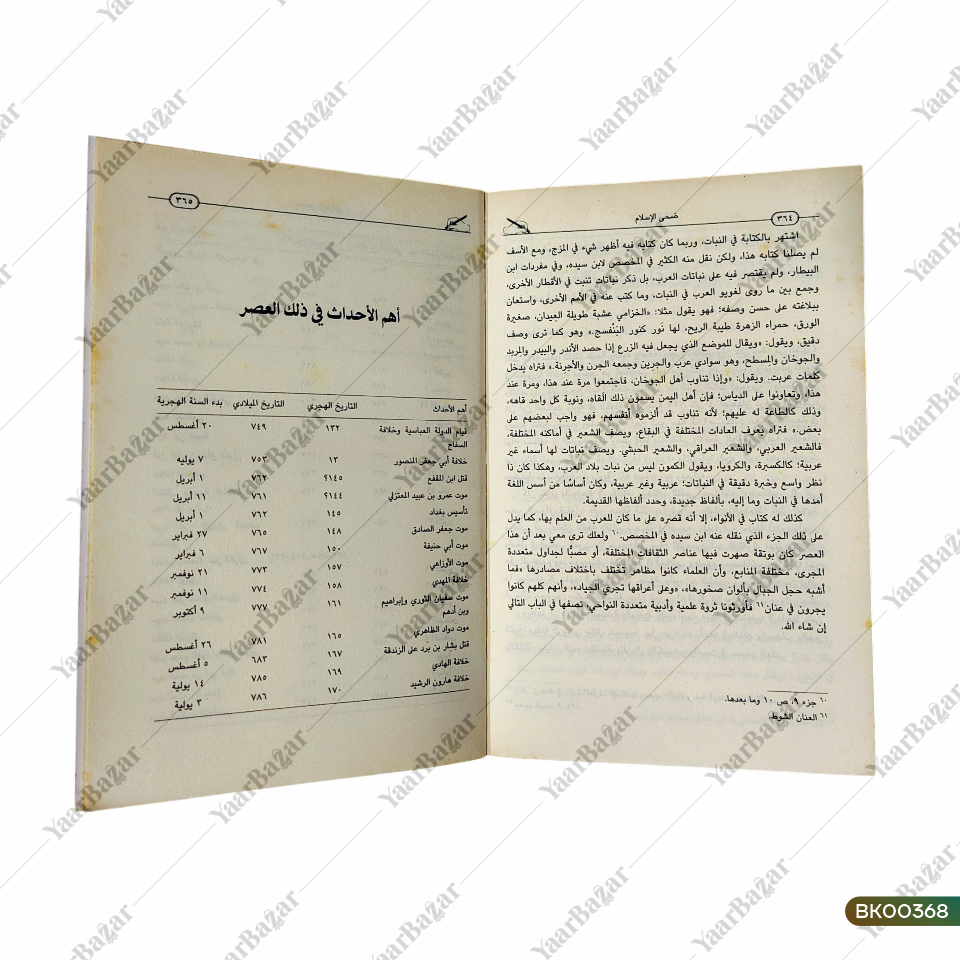 ٣٦٤
ضحى الإسلام
اشتهر بالكتابة في النبات، وربما كان كتابه فيه أظهر شيء في المزج، ومع الأسف
لم يصلنا كتابه هذا، ولكن نقل منه الكثير في المخصص لابن سيده، وفي مفردات ابن
البيطار، ولم يقتصر فيه على نباتات العرب، بل ذكر نباتات تنبت في الأقطار الأخرى،
وجمع بين ما روى لغويو العرب في النبات، وما كتب عنه في الأمم الأخرى، واستعان
ببلاغته على حسن وصفه؛ فهو يقول مثلا: «الخزامي عشبة طويلة العِيدان، صغيرة
الورق، حمراء الزهرة طيبة الريح، لها نَور كنور البَنَفْسج.» وهو كما ترى وصف
دقيق، ويقول: «ويقال للموضع الذي يجعل فيه الزرع إذا حصد الأندر والبيدر والمربد
والجوخان والمسطح، وهو سوادي عرب والجرين وجمعه الجرن والأجرنة.» فتراه يدخل
كلمات عربت. ويقول: «وإذا تناوب أهل الجوخان، فاجتمعوا مرة عند هذا، ومرة عند
هذا، وتعاونوا على الدياس؛ فإن أهل اليمن يسمون ذلك القاه، ونوبة كل واحد قاهه،
وذلك كالطاعة له عليهم؛ لأنه تناوب قد ألزموه أنفسهم، فهو واجب لبعضهم على
بعض.» فتراه يعرف العادات المختلفة في البقاع، ويصف الشعير في أماكنه المختلفة،
فالشعير العربي، والشعير العراقي، والشعير الحبشي. ويصف نباتات لها أسماء غير
عربية؛ كالكسبرة، والكرويا، ويقول الكمون ليس من نبات بلاد العرب، وهكذا كان ذا
نظر واسع وخبرة دقيقة في النباتات؛ عربية وغير عربية، وكان أساسًا من أسس اللغة
أمدها في النبات وما إليه، بألفاظ جديدة، وحدد ألفاظها القديمة.
كذلك له كتاب في الأنواء، إلا أنه قصره على ما كان للعرب من العلم بها، كما يدل
على ذلك الجزء الذي نقله عنه ابن سيده في المخصص.٦٠ ولعلك ترى معي بعد أن هذا
العصر كان بوتقة صهرت فيها عناصر الثقافات المختلفة، أو مصبًّا لجداول متعددة
المجرى، مختلفة المنابع، وأن العلماء كانوا مظاهر تختلف باختلاف مصادرها «فما
أشبه حجل الجبال بألوان صخورها»، «وعلى أعراقها تجري الجياد»، وأنهم كلهم كانوا
يجرون في عنان٦١ فأورثونا ثروة علمية وأدبية متعددة النواحي، نصفها في الباب التالي
إن شاء الله.
٦٠ جزء ٩، ص ١٠ وما بعدها.
٦١ العنان الشوط.
٣٦٥
أهم الأحداث في ذلك العصر
أهم الأحداث التاريخ الهجري التاريخ الميلادي بدء السنة الهجرية
قيام الدولة العباسية وخلافة ١٣٢ ٧٤٩ ٢٠ أغسطس
السفاح
خلافة أبي جعفر المنصور ١٣ ٧٥٣ ٧ يوليه
قتل ابن المقفع ١٤٥؟ ٧٦٢ ١ أبريل
موت عمرو بن عبيد المعتزلي ١٤٤؟ ٧٦١ ١١ أبريل
تأسيس بغداد ١٤٥ ٧٦٢ ١ أبريل
موت جعفر الصادق ١٤٨ ٧٦٥ ٢٧ فبراير
موت أبي حنيفة ١٥٠ ٧٦٧ ٦ فبراير
موت الأوزاعي ١٥٧ ٧٧٣ ٢١ نوفمبر
خلافة المهدي ١٥٨ ٧٧٤ ١١ نوفمبر
موت سفيان الثوري وإبراهيم ١٦١ ٧٧٧ ٩ أكتوبر
وبن أدهم
موت دواد الظاهري ١٦٥ ٧٨١ ٢٦ أغسطس
قتل بشار بن برد على الزندقة ١٦٧ ٦٨٣ ٥ أغسطس
خلافة الهادي ١٦٩ ٧٨٥ ١٤ يولية
خلافة هارون الرشيد ١٧٠ ٧٨٦ ٣ يولية
YaarBazar
BK00368